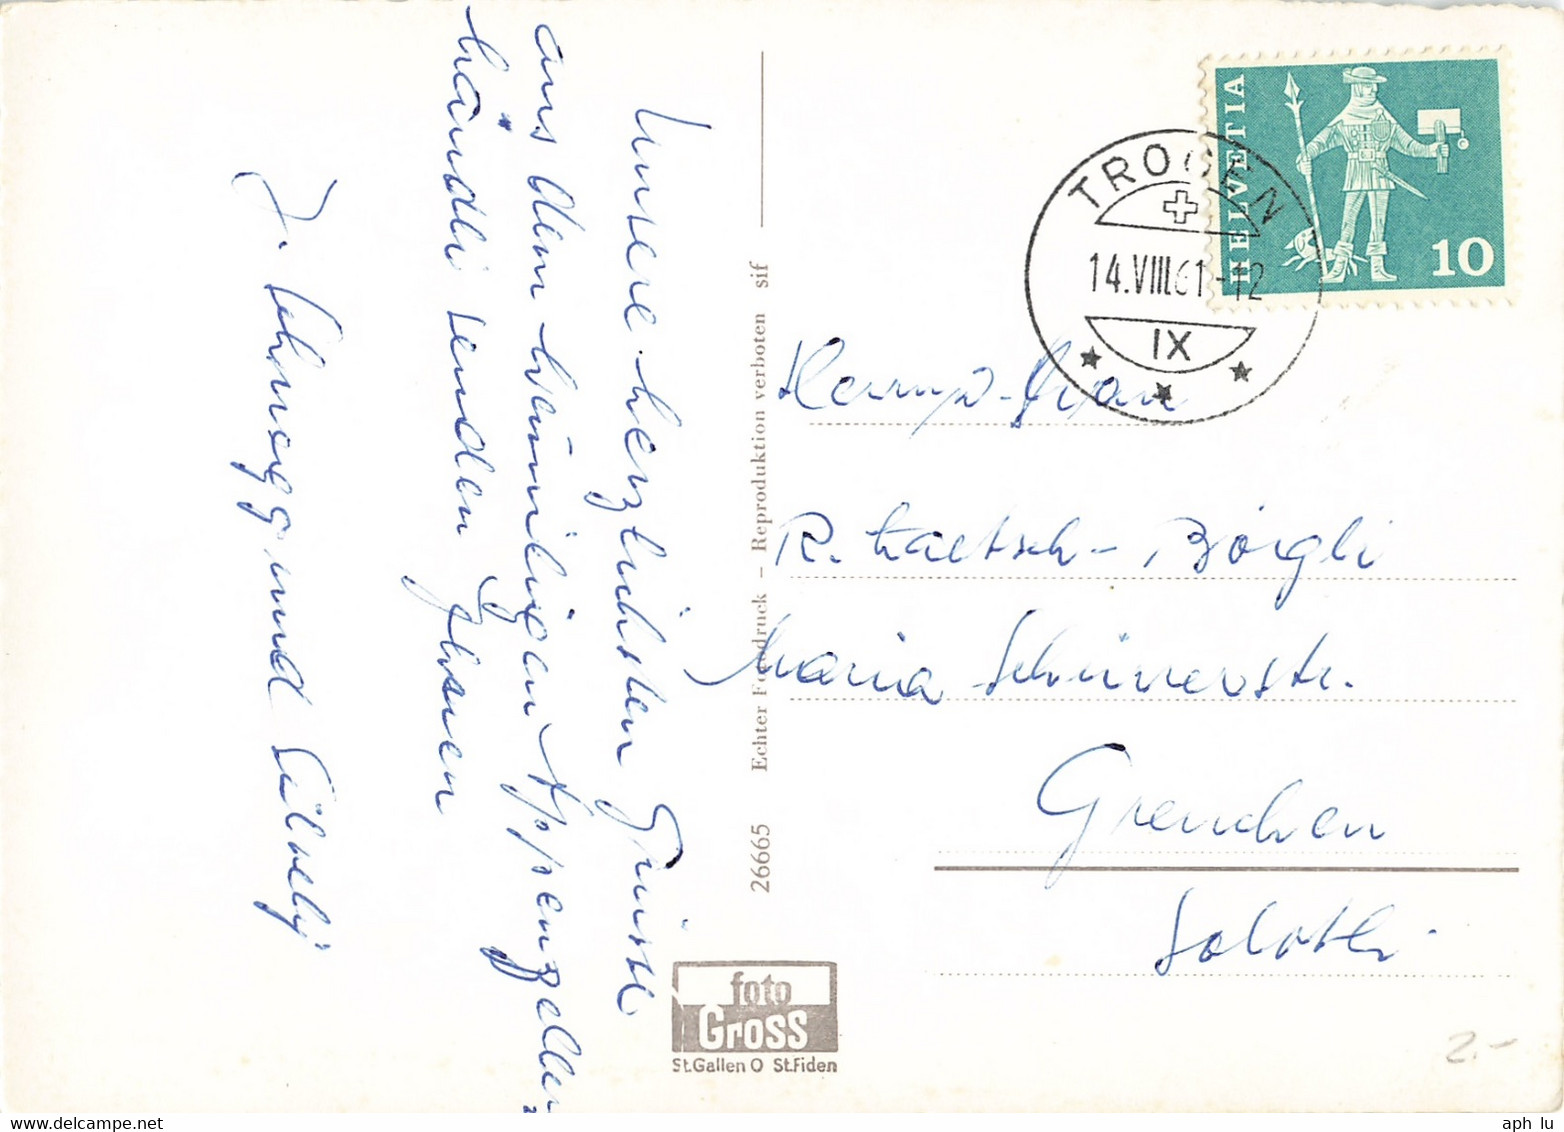 Unsere herzlichsten Grüsse
aus dem heimeligen Appenzeller-
händli senden Ihnen
J. und
HELVETIA
10
TROGEN
14.VIII.61-12
IX
Herrn & Frau
R. - Bürgli
Maria Schürerstr.
Grenchen
Soloth.
Echter Fotodruck – Reproduktion verboten sif
26665
foto
Gross
St.Gallen O St.Fiden
2.-
aph lu